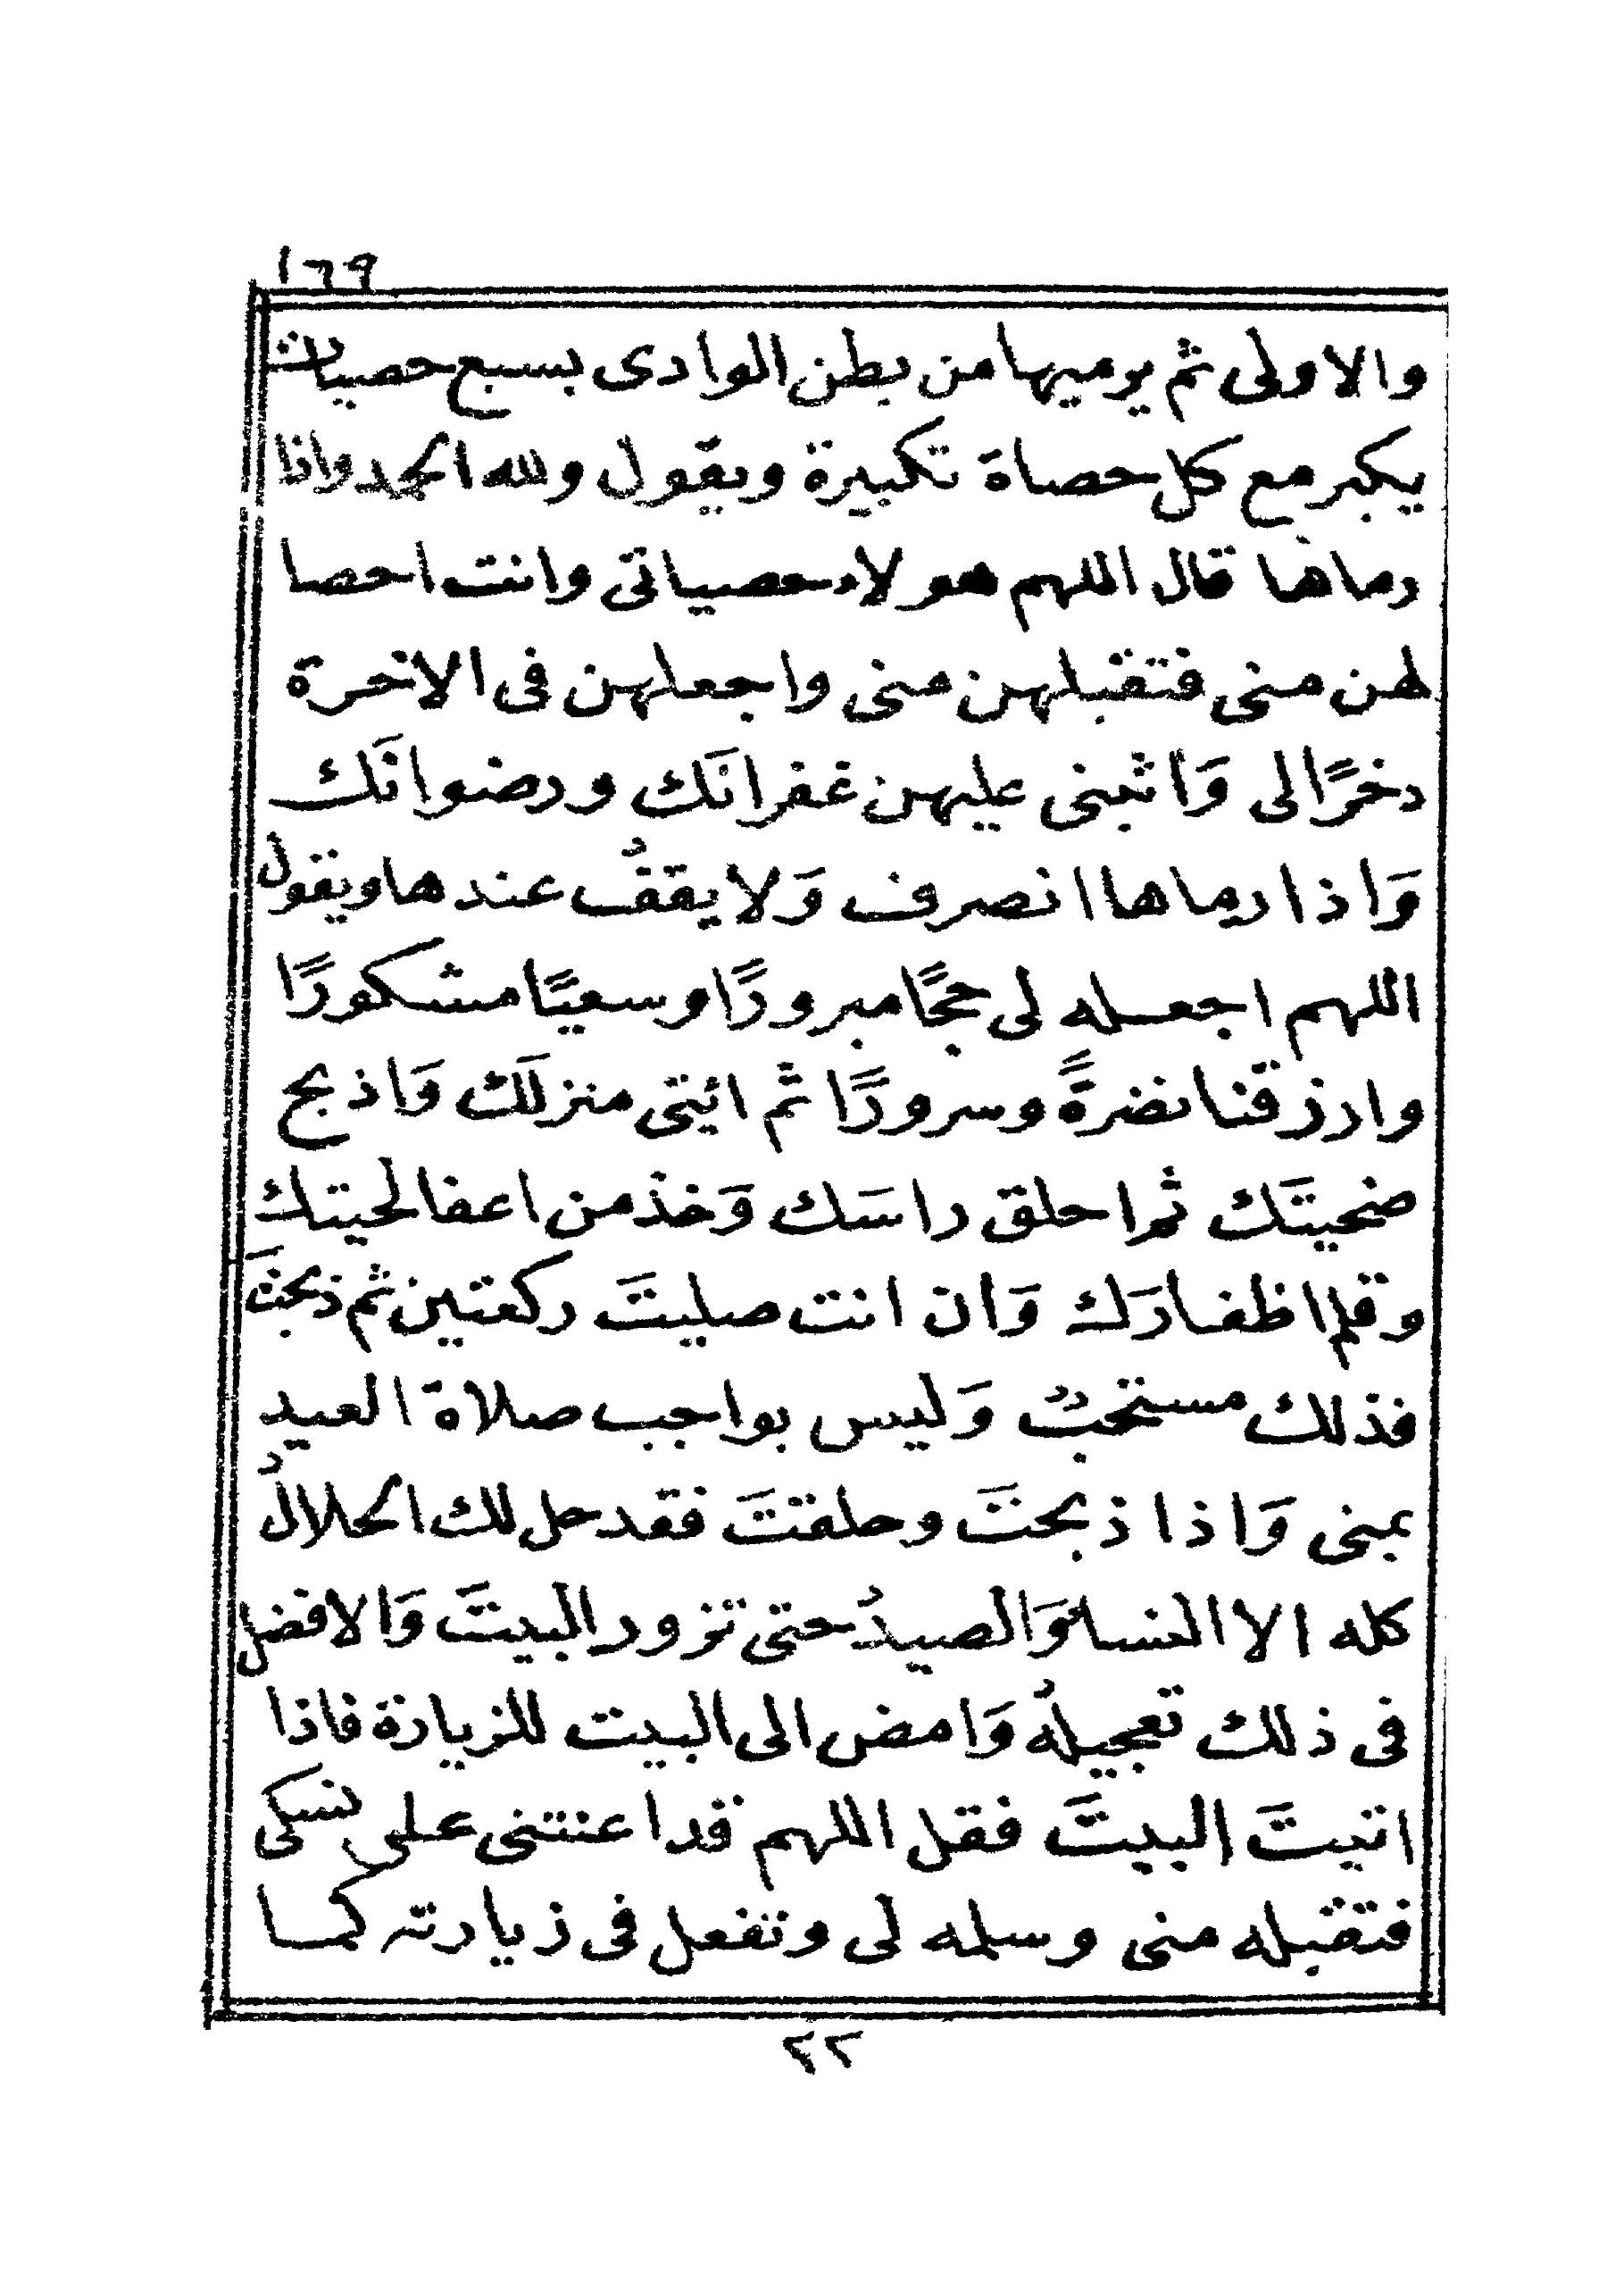 ١٦٩
والاولى ثم يرميها من بطن الوادى بسبع حصيات
يكبر مع كل حصاة تكبيرة ويقول ولله الحمد واذا
رماها قال اللهم هولاء حصياتى وانت احصا
لهن منى فتقبلهن منى واجعلهن فى الاخرة
دخرًا لى وَاثبنى عليهن غفرانَك ورضوانَك
وَاذا رماها انصرف وَلا يقفُ عندها ويقول
اللهم اجعله لى حجًا مبرورًا وسعيًا مشكورًا
وارزقنا نضرةً وسرورًا ثَم ائتى منزلَك وَاذبح
ضحيتَك ثم احلق راسَك وَخذ من اعفا لحيتك
وقلم اظفارَك وَان انت صليتَ ركعتين ثم ذبحتَ
فذلك مستحبٌ وَليس بواجب صلاة العيد
بمنى وَاذا ذبحتَ وحلقتَ فقد حل لك الحلالُ
كله الا النساءَ وَالصيدُ حتى تزور البيتَ وَالافضل
فى ذلك تعجيلهُ وَامض الى البيت للزيارة فاذا
اتيتَ البيتَ فقل اللهم قد اعنتنى على نسكى
فتقبله منى وسلمه لى وتفعل فى زيارته كما
٢٢